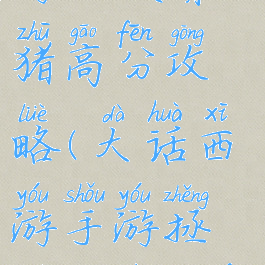 zhū gāo fēn gōng
猪高分攻
lüè dà huà xī
略(大话西
yóu shǒu yóu zhěng
游手游拯